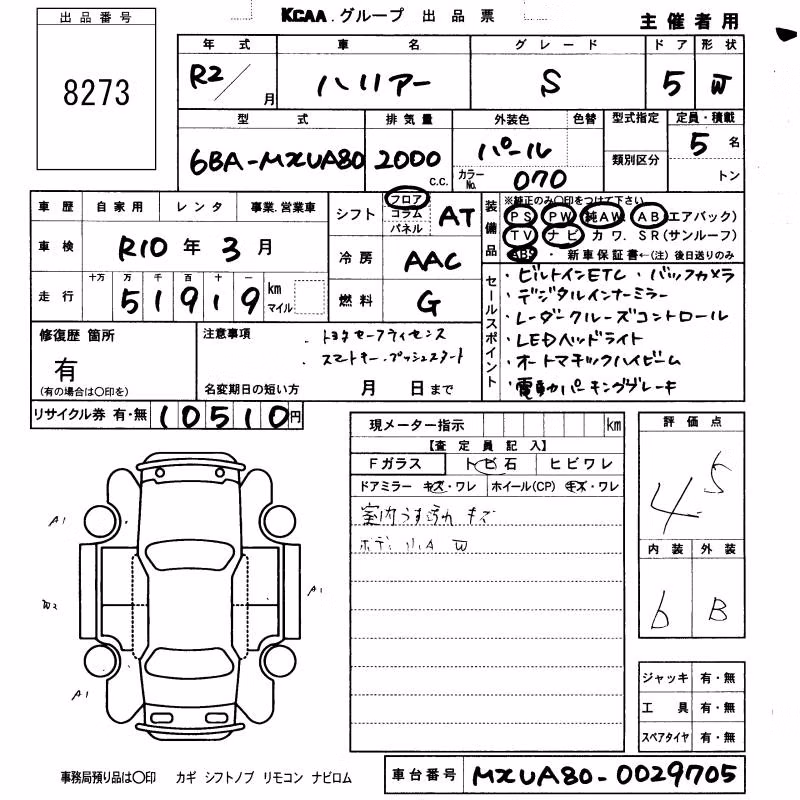 出品番号
8273
KCAA.グループ 出品票
主催者用
年式 車名 グレード ドア 形状
R2/ 月 ハリアー S 5 W
型式 排気量 外装色 色替 型式指定 定員・積載
6BA-MXUA80 2000 c.c. パール 類別区分 5 名
カラーNo. 070 トン
車歴 自家用 レンタ 事業.営業車
車検 R10 年 3 月
走行 十万 万 千 百 十 一
51919 km マイル
シフト フロア コラム パネル AT
冷房 AAC
燃料 G
装備品
※純正のみ〇印をつけて下さい
PS PW 純AW AB(エアバック)
TV ナビ カワ. SR(サンルーフ)
ABS ・ 新車保証書←(注)後日送りのみ
セールスポイント
・ビルトインETC ・バックカメラ
・デジタルインナーミラー
・レーダークルーズコントロール
・LEDヘッドライト
・オートマチックハイビーム
・電動パーキングブレーキ
修復歴 箇所
有
(有の場合は〇印を)
注意事項
・トヨタセーフティセンス
・スマートキー・プッシュスタート
名変期日の短い方 月 日まで
リサイクル券 有・無 10510円
現メーター指示 km
【査定員記入】
Fガラス トビ石 ヒビワレ
ドアミラー キズ・ワレ ホイール(CP) キズ・ワレ
室内うす汚れ キズ
評価点
4.5
内装 外装
b B
A1
A1
W2
A1
ジャッキ 有・無
工具 有・無
スペアタイヤ 有・無
事務局預り品は〇印 カギ シフトノブ リモコン ナビロム
車台番号 MXUA80-0029705